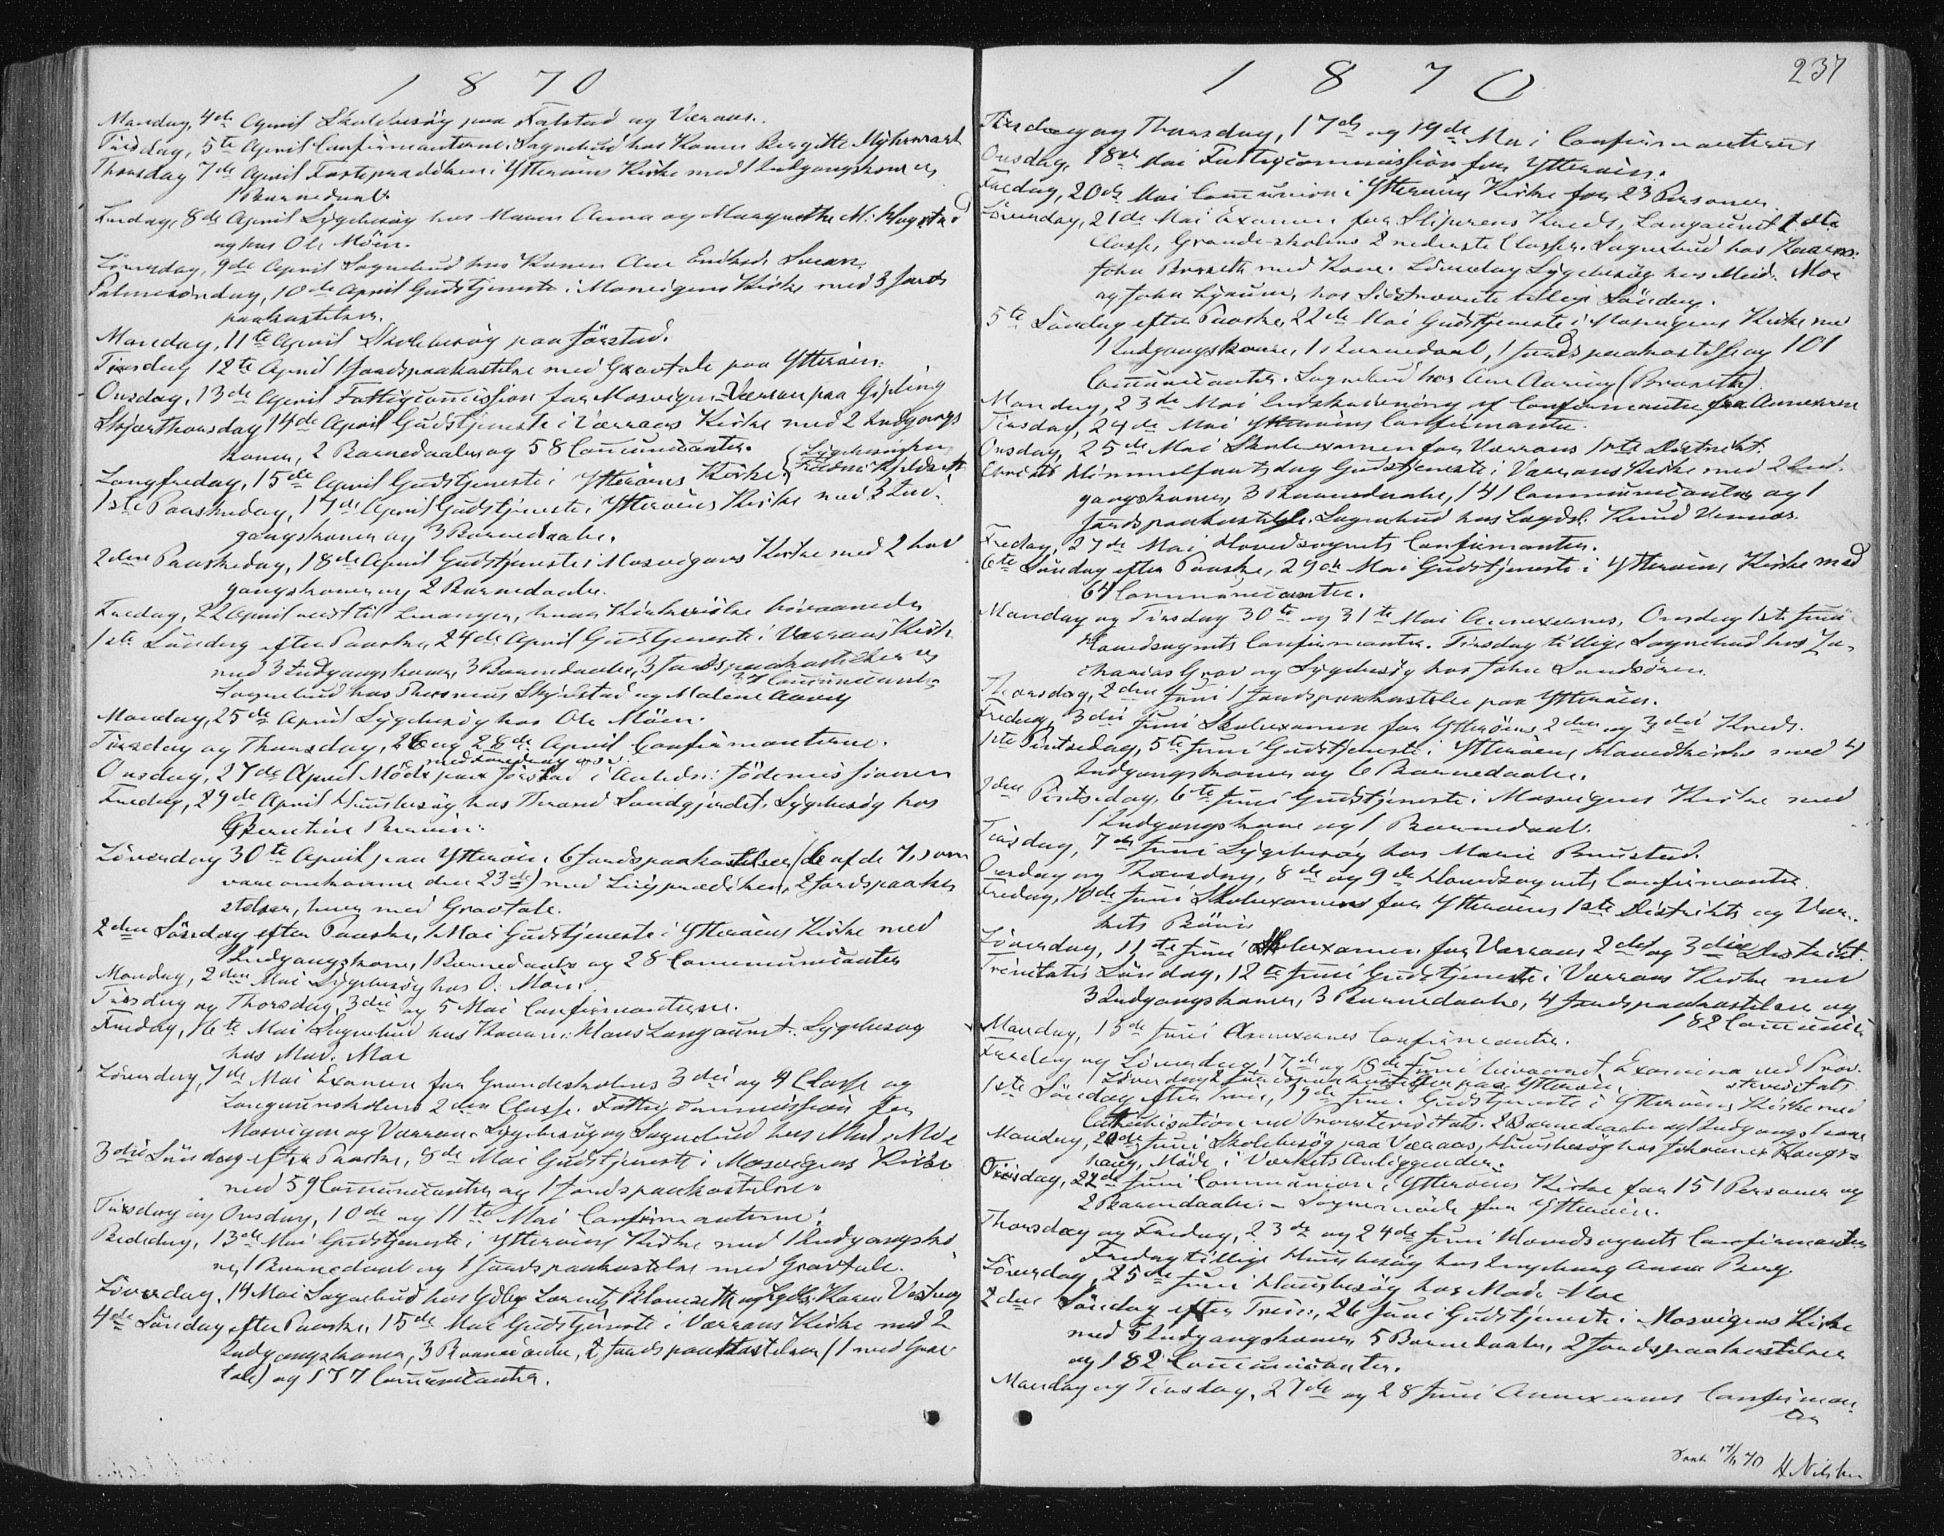 1870
Mandag, 4de April Skolebesøg paa Falstad og Værran.
Tirsdag, 5te April Confirmanterne. Sognebud hos Konen Bergitte Myhrvart
Thorsdag 7de April Fasteprædiken i Ytterøens Kirke med 1 Indgangskone og
1 Barnedaab.
Fredag, 8de April Sygebesøg hos Maren Anna og Margrethe M:
og hos Ole Möen.
Löverdag, 9de April Sognebud hos Konen Ane Eriksd.
Palmesöndag, 10de April Gudstjeneste i Mosvigens Kirke med 3 Jords
paakastelser.
Mandag, 11te April Skolebesøg paa Jörstad.
Tirsdag 12te April 1 Jordspaakastelse med Gravtale paa Ytterøen.
Onsdag, 13de April Fattigcommission for Mosvigen-Værran paa Gipling
Skjærthorsdag 14de April Gudstjeneste i Værrans Kirke med 2 Indgangs
koner, 2 Barnedaaber og 58 Communicanter.
Langfredag, 15de April Gudstjeneste i Ytterøens Kirke.
1ste Paaskedag, 17de April Gudstjeneste i Ytterøens Kirke med 3 Ind-
gangskoner og 3 Barnedaabe.
2den Paaskedag, 18de April Gudstjeneste i Mosvigens Kirke med 2 Ind
gangskoner og 2 Barnedaabe.
Fredag, 22 April reist til Levanger, hvor
1ste Söndag efter Paaske, 24de April Gudstjeneste i Værrans Kirke
med 3 Indgangskoner, 3 Barnedaabe, 3 Jordspaakastelser og
34 Communicanter
Sognebud hos Skjelstad og Malene Aavey
Mandag, 25de April Sygebesøg hos Ole Möen.
Tirsdag og Thorsdag, 26 og 28de April Confirmanterne.
Onsdag, 27de April Möde paa Jörstad i Anledn: Jödemissionen
Fredag, 29de April Huusbesøg hos Sandgjerdet. Sygebesøg hos
Löverdag 30te April paa Ytterøen 6 Jordspaakastelser (6 af de 7, som
vare omkomne den 23de) med Liigprædiken, 2 Jordspaaka
stelser, hver med Gravtale.
2den Söndag efter Paaske, 1 Mai Gudstjeneste i Ytterøens Kirke med
1 Indgangskone, 1 Barnedaab og 28 Communicanter
Mandag, 2den Mai Sygebesøg hos O. Möen
Tirsdag og Thorsdag, 3die og 5 Mai Confirmanterne.
Fredag, 6te Mai Sognebud hos Hans Langaunet. Sygebesøg
hos Mad. Moe
Löverdag, 7de Mai Examen for Grandeskolens 3die og 4 Classe og
Langaunskolens 2den Classe. Fattigcommission for
Mosvigen og Værran. Sygebesøg og Sognebud hos Mad. Moe
3die Söndag efter Paaske, 8de Mai Gudstjeneste i Mosvigens Kirke
med 59 Communicanter og 1 Jordspaakastelse.
Tirsdag og Onsdag, 10de og 11te Mai Confirmanterne.
Bededag, 13de Mai Gudstjeneste i Ytterøens Kirke med 1 Indgangsko
ne, 1 Barnedaab og 1 Jordspaakastelse med Gravtale.
Löverdag, 14 Mai Sognebud hos Lorents og Karen
4de Söndag efter Paaske, 15de Mai Gudstjeneste i Værrans Kirke med 2
Indgangskoner, 3 Barnedaabe, 2 Jordspaakastelser (1 med Grav
tale) og 177 Communicanter.
1870
237
Tirsdag og Thorsdag, 17de og 19de Mai Confirmanterne
Onsdag, 18de Mai Fattigcommission for Ytterøen.
Fredag, 20de Mai Communion i Ytterøens Kirke for 23 Personer.
Löverdag, 21de Mai Examen for Sliperens Kreds, Langaunet 1ste
Classe, Grande-skolens 2 nederste Classer. Sognebud hos
John med Kone. Löverdag Sygebesøg hos Mad. Moe
og John Ljaunen, hos Sidstnævnte tillige Söndag.
5te Söndag efter Paaske, 22de Mai Gudstjeneste i Mosvigens Kirke med
1 Indgangskone, 1 Barnedaab, 1 Jordspaakastelse og 101
Communicanter. Sognebud hos Ane Aaring
Mandag, 23de Mai Indskrivning af Confirmanter fra Annexerne
Tirsdag, 24de Mai Ytterøens Confirmanter.
Onsdag, 25de Mai Skoleexamen for Værrans 1ste Distrikt.
Christi Himmelfartsdag Gudstjeneste i Værrans Kirke med 2 Ind
gangskoner, 3 Barnedaabe, 141 Communicanter og 1
Jordspaakastelse. Sognebud hos Lægdsl. Knud
Fredag, 27de Mai Hovedsognets Confirmanter.
6te Söndag efter Paaske, 29de Mai Gudstjeneste i Ytterøens Kirke med
64 Communicanter.
Mandag og Tirsdag 30te og 31te Mai Annexernes, Onsdag 1ste Juni
Hovedsognets Confirmanter. Tirsdag tillige Sognebud hos Za-
charias Grav og Sygebesøg hos John Sandsören.
Thorsdag, 2den Juni 1 Jordspaakastelse paa Ytterøen.
Fredag, 3die Juni Skoleexamen for Ytterøens 2den og 3die Kreds.
1ste Pintsedag, 5te Juni Gudstjeneste i Ytterøens Hovedkirke med 4
Indgangskoner og 6 Barnedaabe.
2den Pintsedag, 6te Juni Gudstjeneste i Mosvigens Kirke med
1 Indgangskone og 1 Barnedaab.
Tirsdag, 7de Juni Sygebesøg hos Marie
Onsdag og Thorsdag, 8de og 9de Hovedsognets Confirmanter.
Fredag, 10de Juni Skoleexamen for Ytterøens 1ste Distrikts og Vær-
kets Börn
Löverdag, 11te Juni Skoleexamen for Værrans 2det og 3die Distrikt.
Trinitatis Söndag, 12te Juni Gudstjeneste i Værrans Kirke med
3 Indgangskoner, 3 Barnedaabe, 4 Jordspaakastelser og
182 Communic
Mandag, 13de Juni Annexernes Confirmanter.
Fredag og Löverdag, 17de og 18de Juni Examina ved Prov-
stevisitats
Löverdag Jordspaakastelser paa Ytterøen.
1ste Söndag efter Trin:, 19de Juni Gudstjeneste i Ytterøens Kirke med
Cathechisation ved Provstevisitats. 2 Barnedaabe og 1 Indgangskone
Mandag, 20de Juni Skolebesøg paa Værran, Huusbesøg hos Johannes
haug, Möde i Værkets Anliggender.
Onsdag, 22de Juni Communion i Ytterøens Kirke for 151 Personer og
2 Barnedaabe. Sognemöde for Ytterøen.
Thorsdag og Fredag, 23de og 24de Juni Hovedsognets Confirmanter
Fredag tillige Huusbesøg hos Ingeborg Anna Berg.
Löverdag, 25de Juni Huusbesøg hos Mad. Moe
2den Söndag efter Trin:, 26 Juni Gudstjeneste i Mosvigens Kirke
med 5 Indgangskoner, 5 Barnedaabe, 2 Jordspaakastelser
og 182 Communicanter.
Mandag og Tirsdag, 27de og 28 Juni Annexernes Confirman-
ter
H. Nilsen